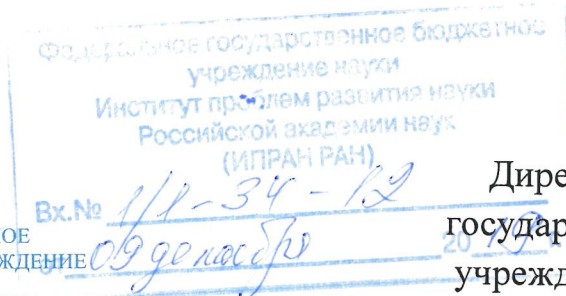 Федеральное государственное бюджетное
учреждение науки
Институт проблем развития науки
Российской академии наук
(ИПРАН РАН)
Вх.№ 1/1-34-12
09 декабря 2019
ОЕ
ЖДЕНИЕ
Дире
государ
учрежд